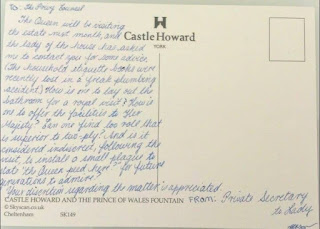 To: The Privy Council
The Queen will be visiting
the estate next month, and
the lady of the house has asked
me to contact you for some advice.
(The household etiquette books were
recently lost in a freak plumbing
accident.) How is one to lay out the
bathroom for a royal visit? How is
one to offer the facilities to Her
Majesty? Can one find loo roll that
is superior to two-ply? And is it
considered indiscreet, following the
visit, to install a small plaque to
state "the Queen peed here" for future
generations to admire?
Your discretion regarding the matter is appreciated.
From: Private Secretary
to Lady
Castle Howard
YORK
CASTLE HOWARD AND THE PRINCE OF WALES FOUNTAIN
© Skyscan.co.uk
Cheltenham
SK149